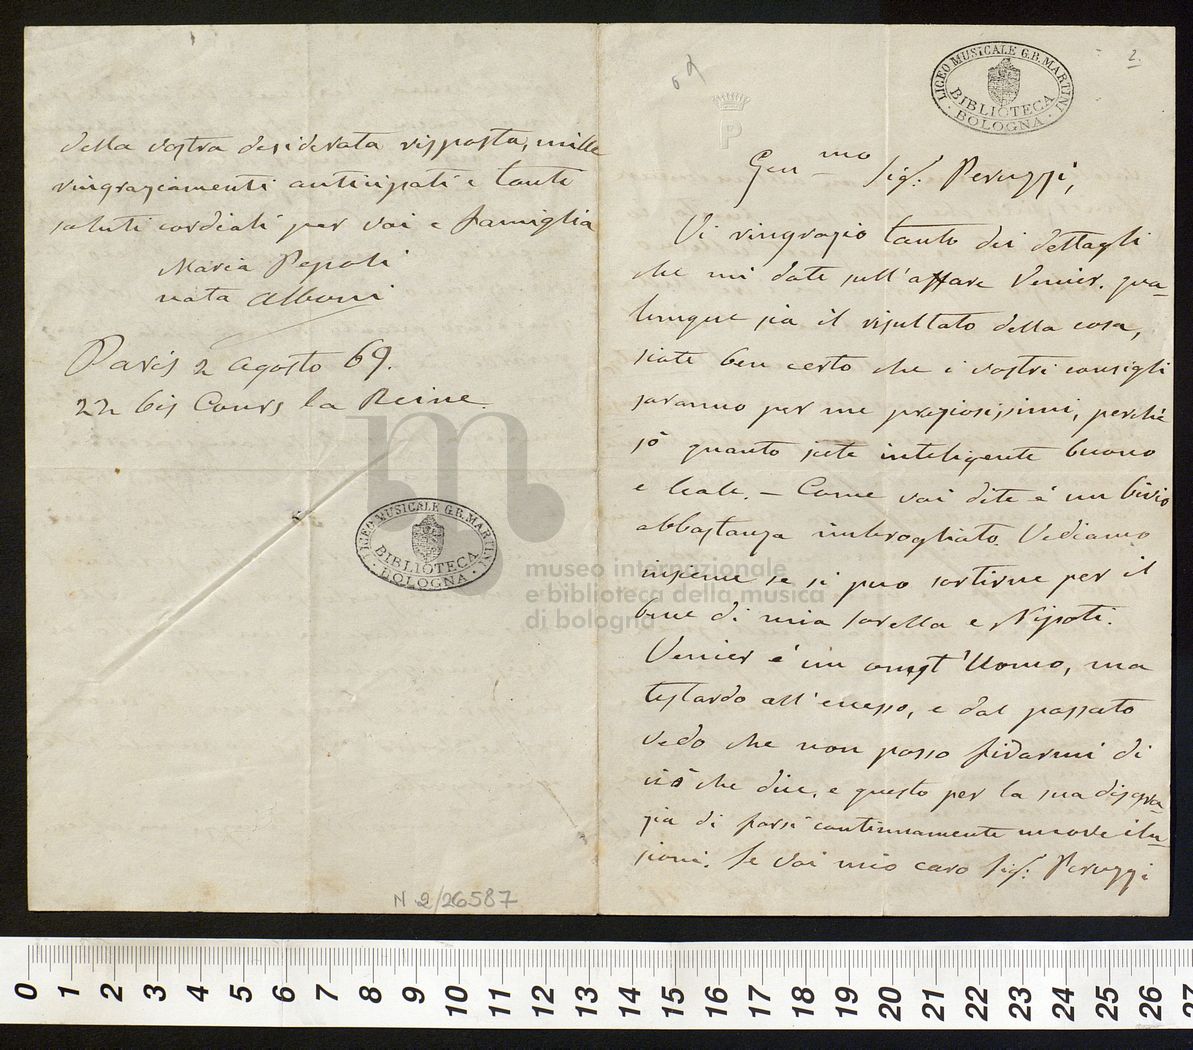 della vostra desiderata risposta, mille
ringraziamenti anticipati e tanti
saluti cordiali per voi e famiglia
Maria Pepoli
nata Alboni
Paris 2 Agosto 69.
22 bis Cours la Reine.
LICEO MUSICALE G.B. MARTINI
BIBLIOTECA
BOLOGNA
museo internazionale
e biblioteca della musica
di bologna
N 2/26587
2.
LICEO MUSICALE G.B. MARTINI
BIBLIOTECA
BOLOGNA
P
Gen mo Sig: Peruzzi,
Vi ringrazio tanto dei dettagli
che mi date sull'affare Venier. qua-
lunque sia il risultato della cosa,
siate ben certo che i vostri consigli
saranno per me preziosissimi, perché
sò quanto siete inteligente buono
e leale. – Come voi dite è un bivio
abbastanza imbrogliato. Vediamo
insieme se si può sortirne per il
bene di mia sorella e Nipoti.
Venier è un onest'Uomo, ma
testardo all'eccesso, e dal passato
vedo che non posso fidarmi di
ciò che dice, e questo per la sua disgra-
zia di farsi continuamente nuove ilu-
sioni. Se voi mio caro Sig: Peruzzi
0 1 2 3 4 5 6 7 8 9 10 11 12 13 14 15 16 17 18 19 20 21 22 23 24 25 26 27